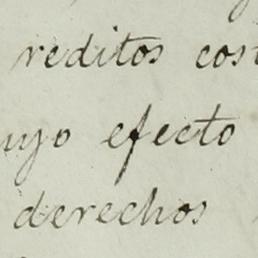 reditos cos
uyo efecto
derechos